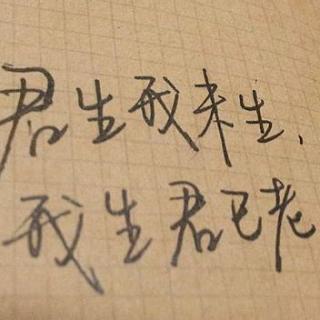 君生我未生，
我生君已老